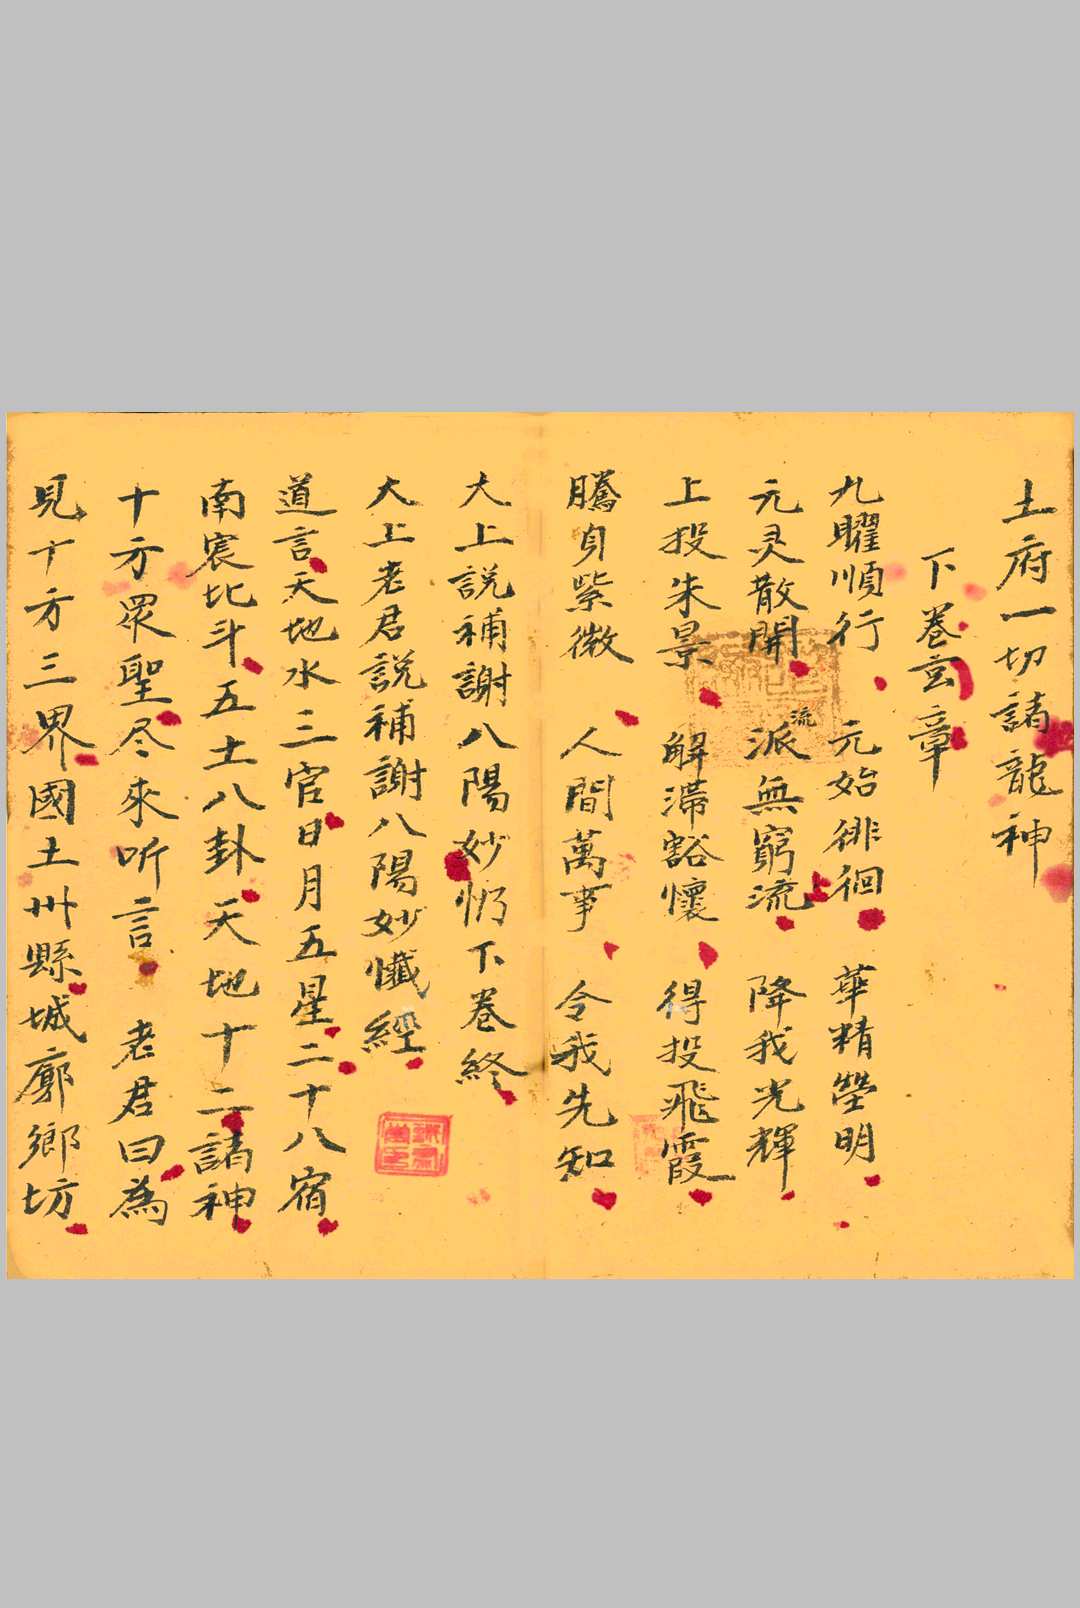 土府一切諸龍神
下卷玄章
九曜順行　元始徘徊　華精瑩明
元灵散開　流派無窮流　降我光輝
上投朱景　解滯豁懷　得投飛霞
騰身紫微　人間萬事　令我先知
大上説補謝八陽妙 下卷終
大上老君説補謝八陽妙懺經
道言天地水三官日月五星二十八宿
南宸北斗五土八卦天地十二諸神
十方眾聖尽來听言　老君曰為
見十方三界國土卅縣城廓鄉坊